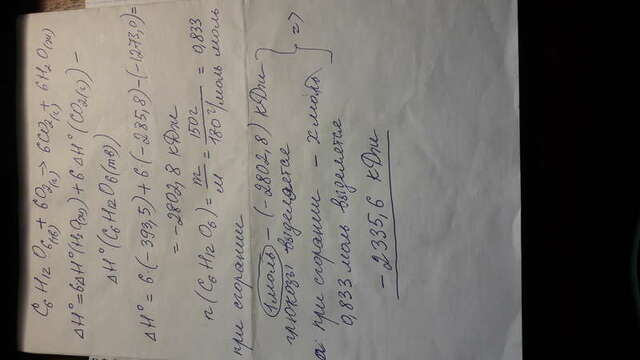 C6H12O6(тв) + 6O2(г) → 6CO2(г) + 6H2O(ж)
ΔH° = 6ΔH°(H2O(ж)) + 6ΔH°(CO2(г)) –
ΔH°(C6H12O6(тв))
ΔH° = 6·(-393,5) + 6(-285,8) - (-1273,0) =
= -2802,8 кДж
n(C6H12O6) = m/M = 150г/180г/моль = 0,833 моль
при сгорании
1 моль – (-2802,8) кДж
глюкозы выделяется
а при сгорании – х моль
0,833 моль выделятся
=>
– 2335,6 кДж